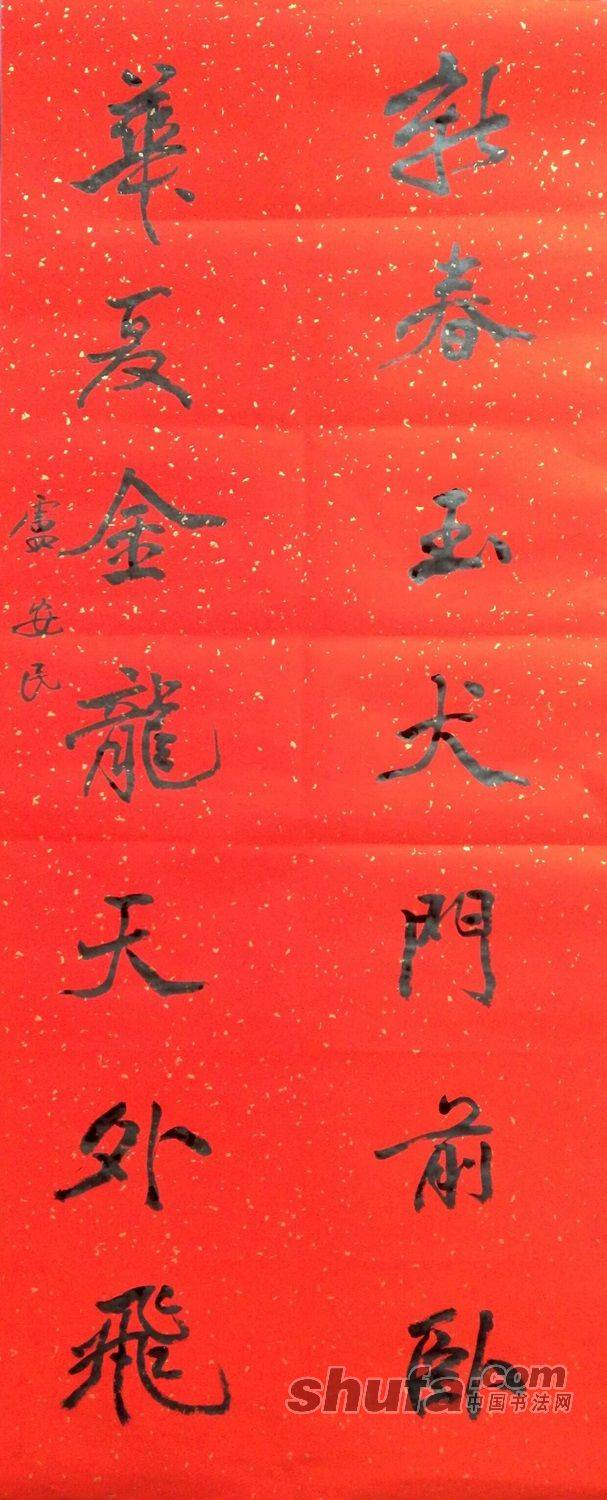 新春玉犬門前臥
華夏金龍天外飛
盧安民
shufa.com
中国书法网